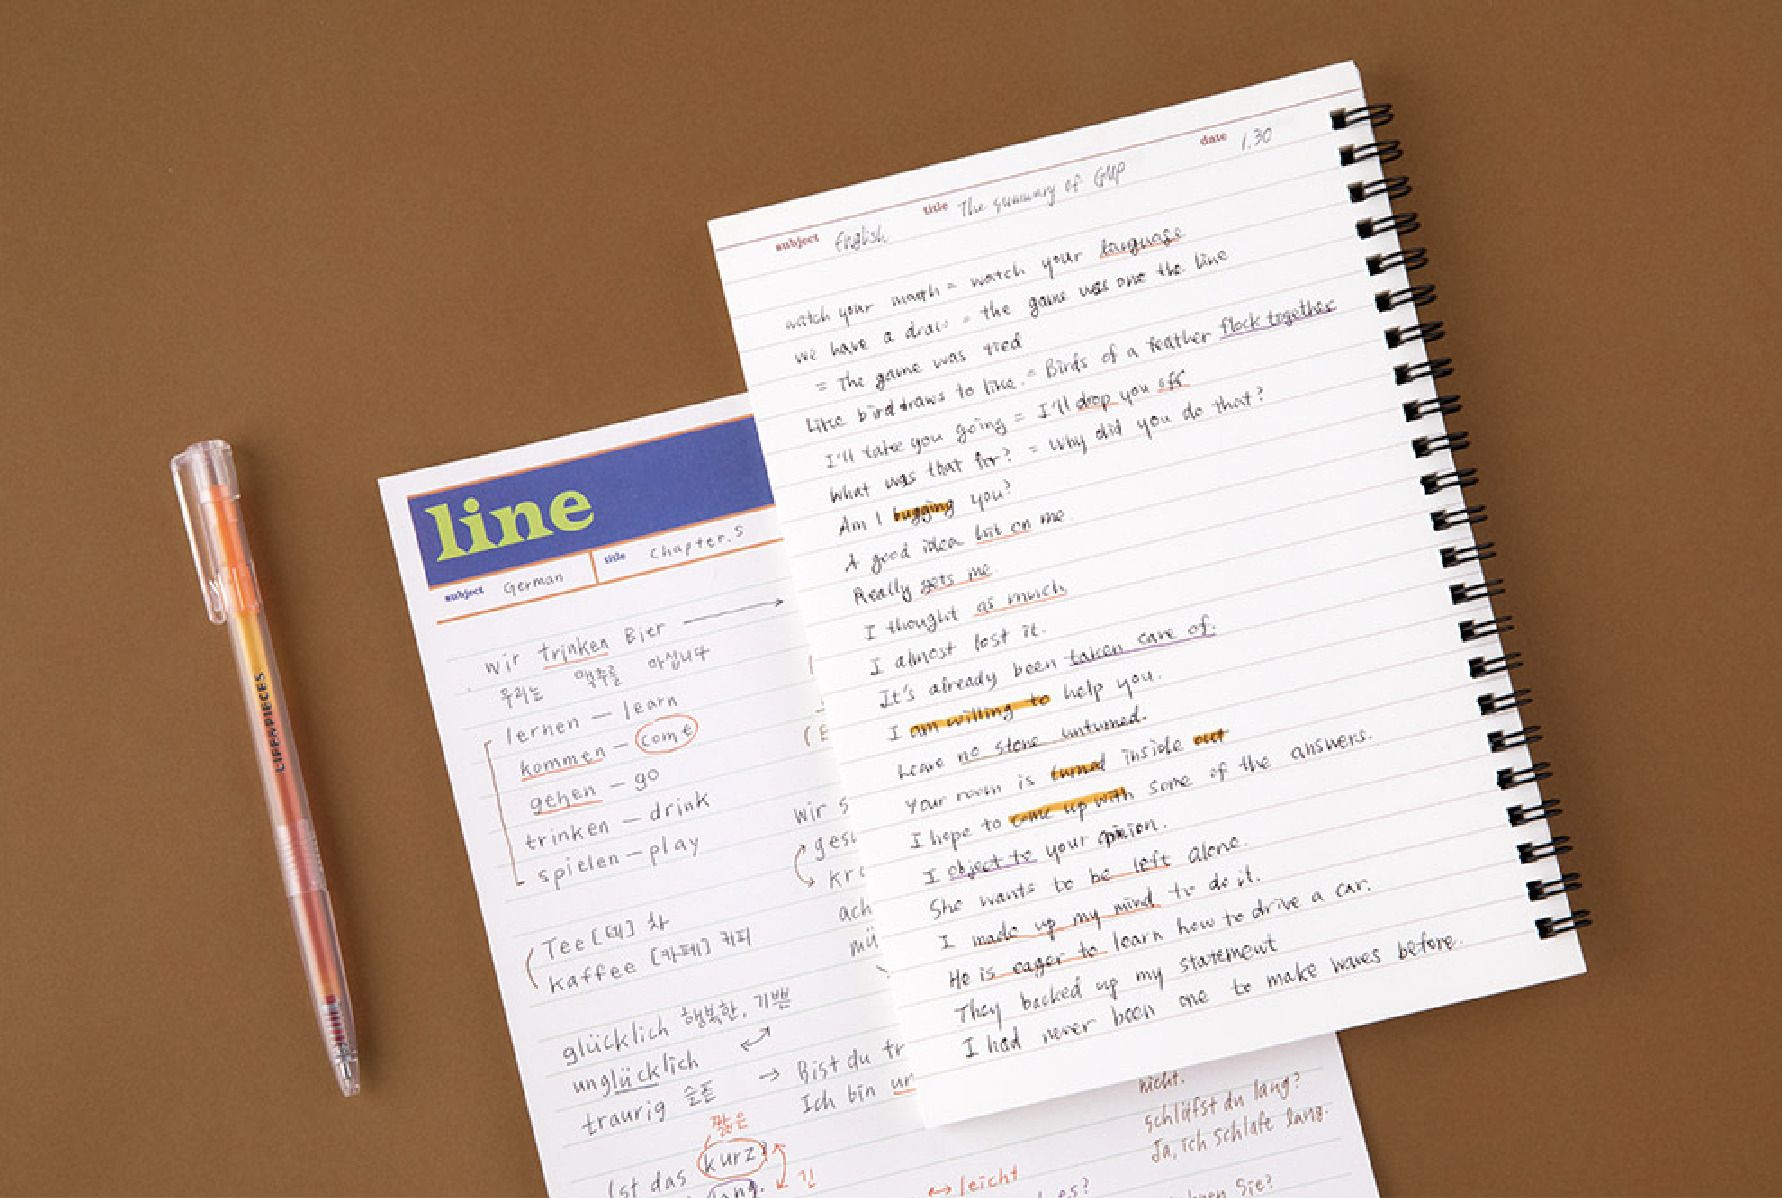 LIFE&PIECES
line
subject German title Chapter.5
wir trinken Bier →
우리는 맥주를 마십니다
lernen – learn
kommen – come
gehen – go
trinken – drink
spielen – play
Tee [테] 차
kaffee [카페] 커피
glücklich 행복한, 기쁜
unglücklich
traurig 슬픈
짧은
Ist das kurz?
lang.
긴
wir s
ges
kr
ach
mü
→ Bist du tr
Ich bin un
↔ leicht
es?
nicht.
schläfst du lang?
Ja, ich schlafe lang.
Sie?
date 1.30
title The summary of GMP
subject English
watch your mouth = watch your language
we have a draw = the game was one the line
= The game was tied
Like bird draws to like. = Birds of a feather flock together
I'll take you going = I'll drop you off
What was that for? = Why did you do that?
Am I bugging you?
A good idea hit on me.
Really gets me.
I thought as much
I almost lost it.
It's already been taken care of.
I am willing to help you.
Leave no stone unturned.
Your room is turned inside out
I hope to come up with some of the answers.
I object to your opinion.
She wants to be left alone.
I made up my mind to do it.
He is eager to learn how to drive a car.
They backed up my statement
I had never been one to make waves before.